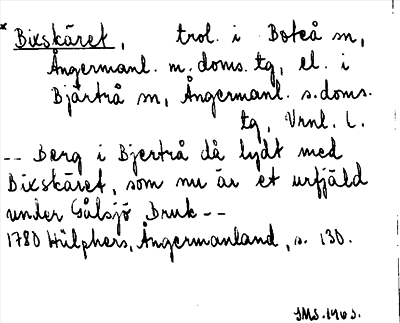 * Bixskäret, trol. i Boteå sn,
Ångermanl. m. doms. tg, el. i
Bjärtrå sn, Ångermanl. s. doms.
tg, Vrnl. l.
-- Berg i Bjertrå då lydt med
Bixskäret, som nu är et urfjäld
under Gålsjö Bruk --
1780 Hülphers, Ångermanland, s. 130.